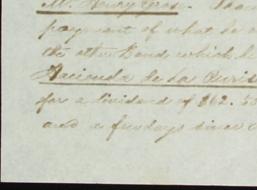 Mr. Henry
payment of what he
the other Bond which he
Hacienda de la Puris
for a dividend of $62.
and a few days since